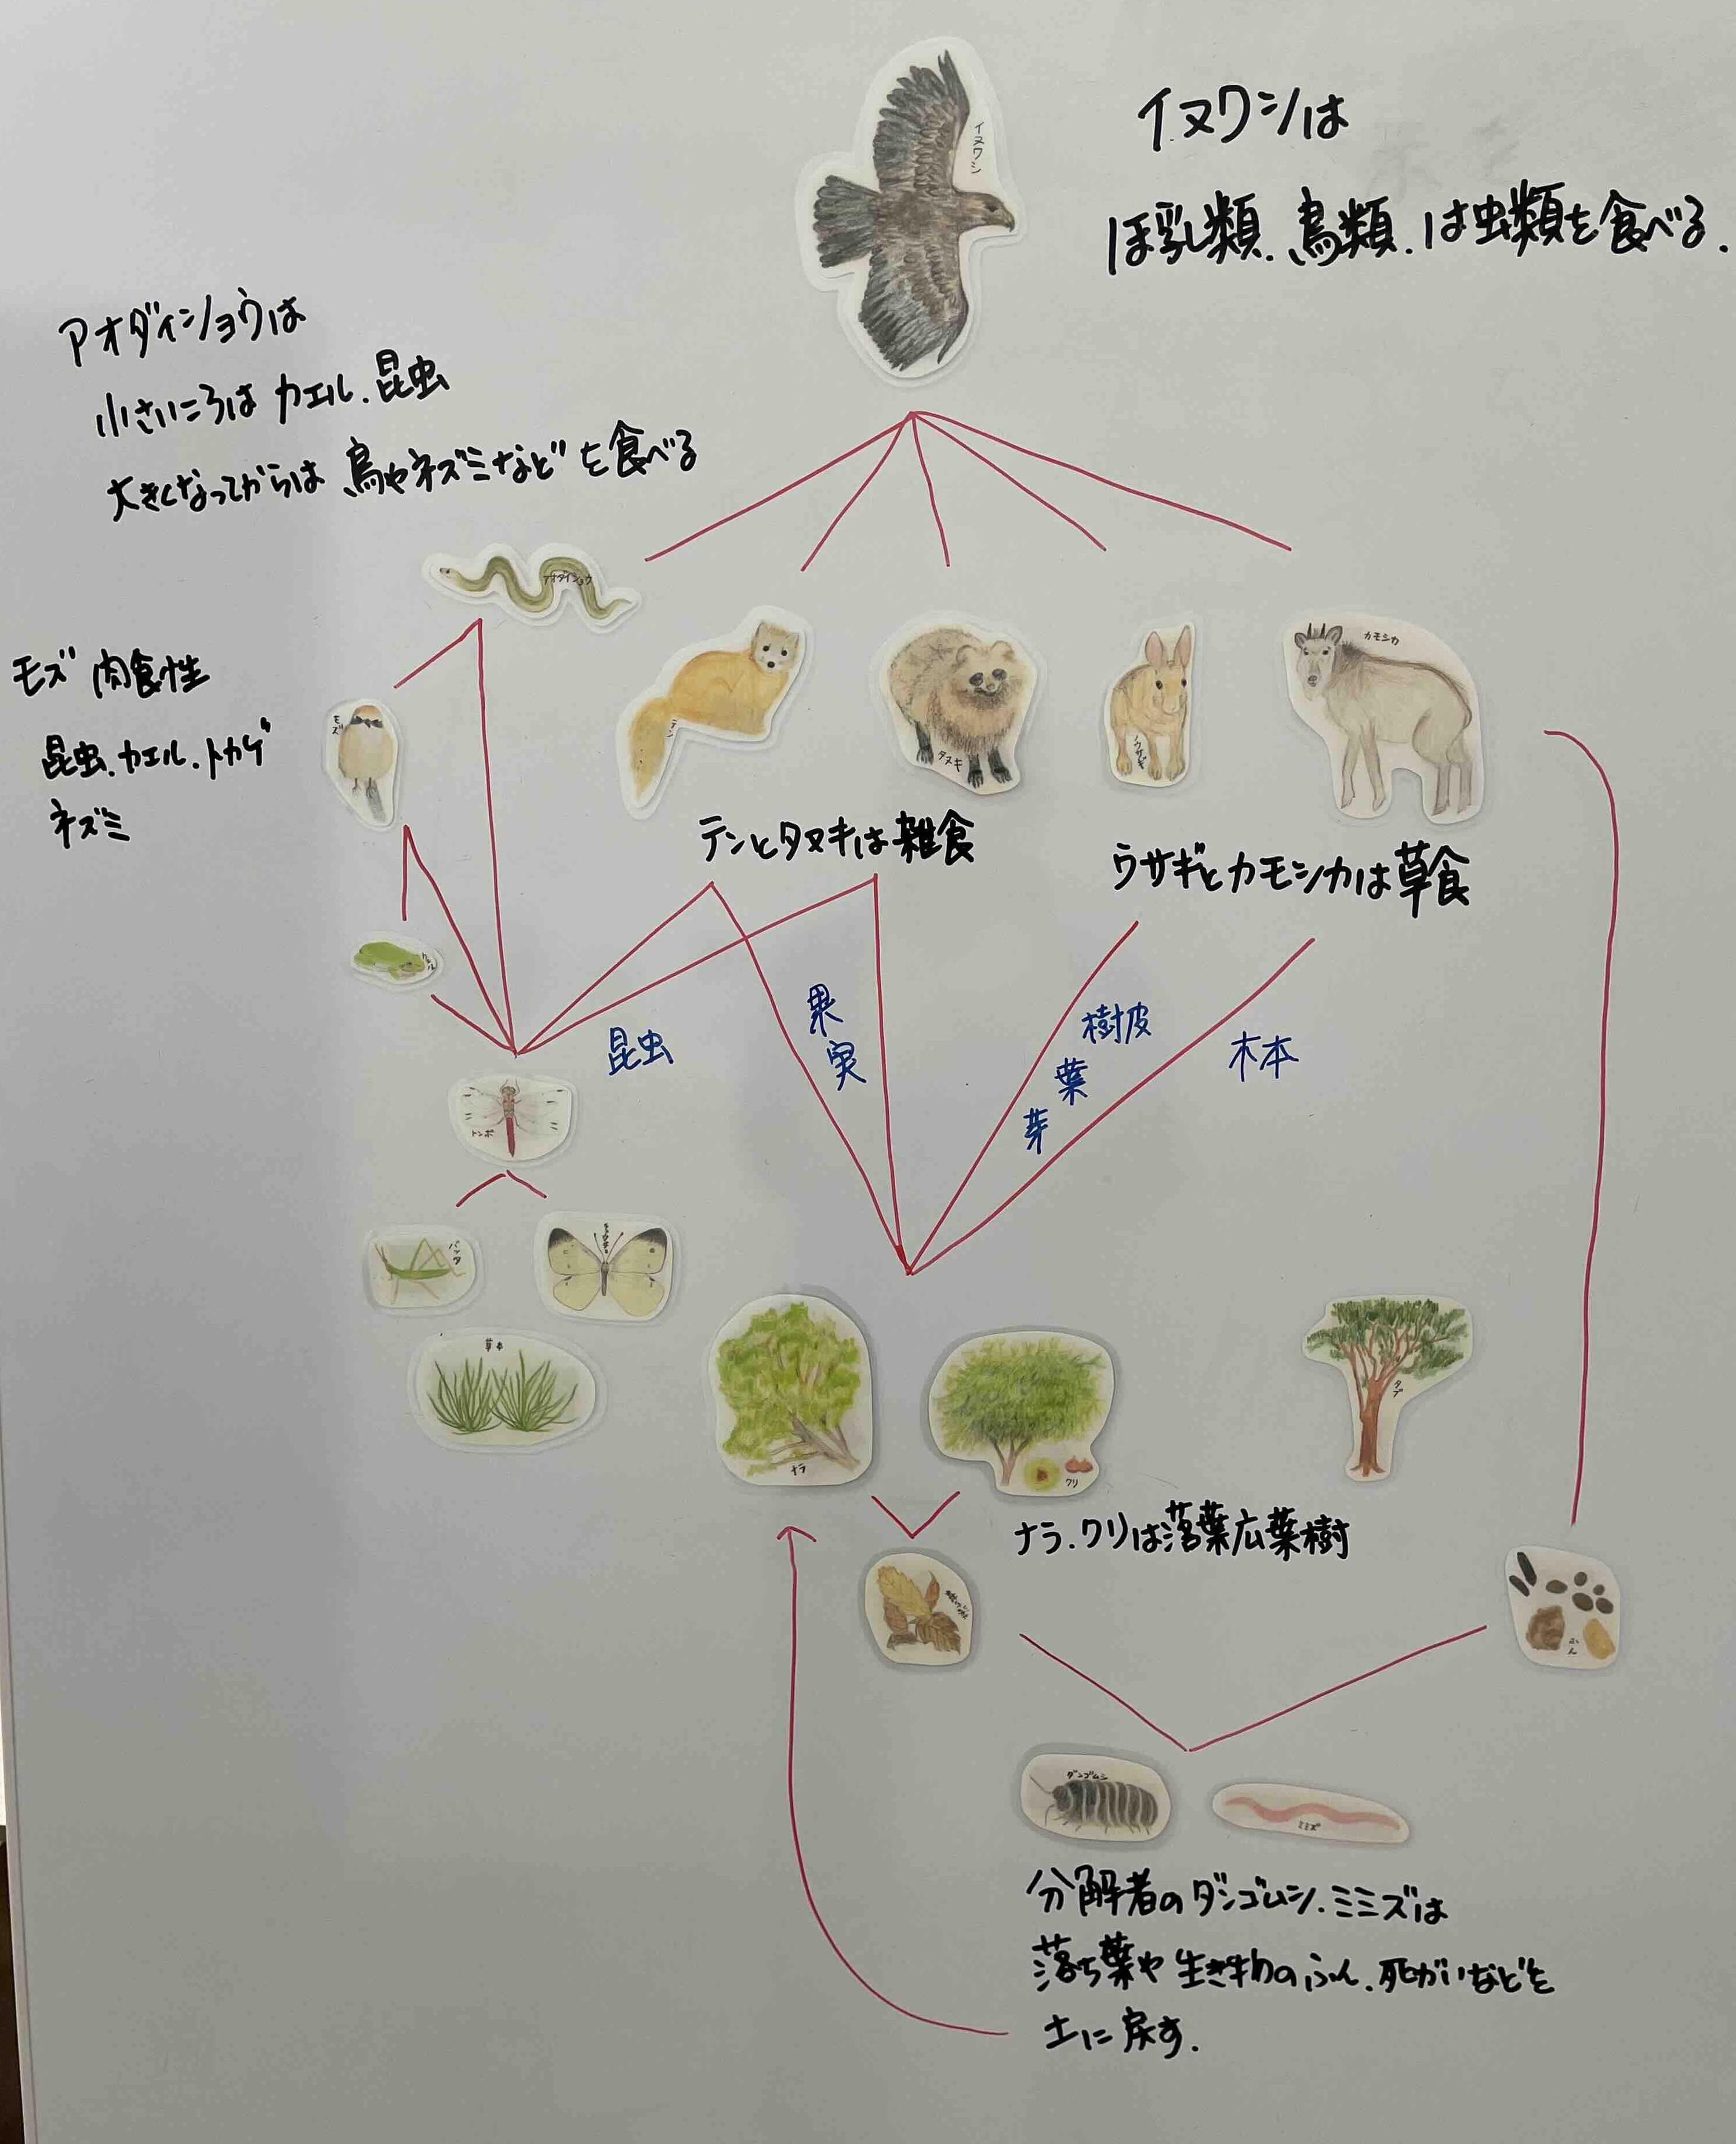 イヌワシ
イヌワシは
ほ乳類.鳥類.は虫類を食べる.
アオダイショウは
小さいころはカエル.昆虫
大きくなってからは鳥やネズミなどを食べる
アオダイショウ
モズ 肉食性
昆虫.カエル.トカゲ
ネズミ
モズ
テン
タヌキ
ノウサギ
カモシカ
テンとタヌキは雑食
ウサギとカモシカは草食
カエル
昆虫
果実
樹皮
葉
芽
木本
トンボ
バッタ
チョウチョ
草本
ナラ
クリ
タブ
ナラ.クリは落葉広葉樹
ふん
ダンゴムシ
ミミズ
分解者のダンゴムシ.ミミズは
落ち葉や生き物のふん.死がいなどを
土に戻す.